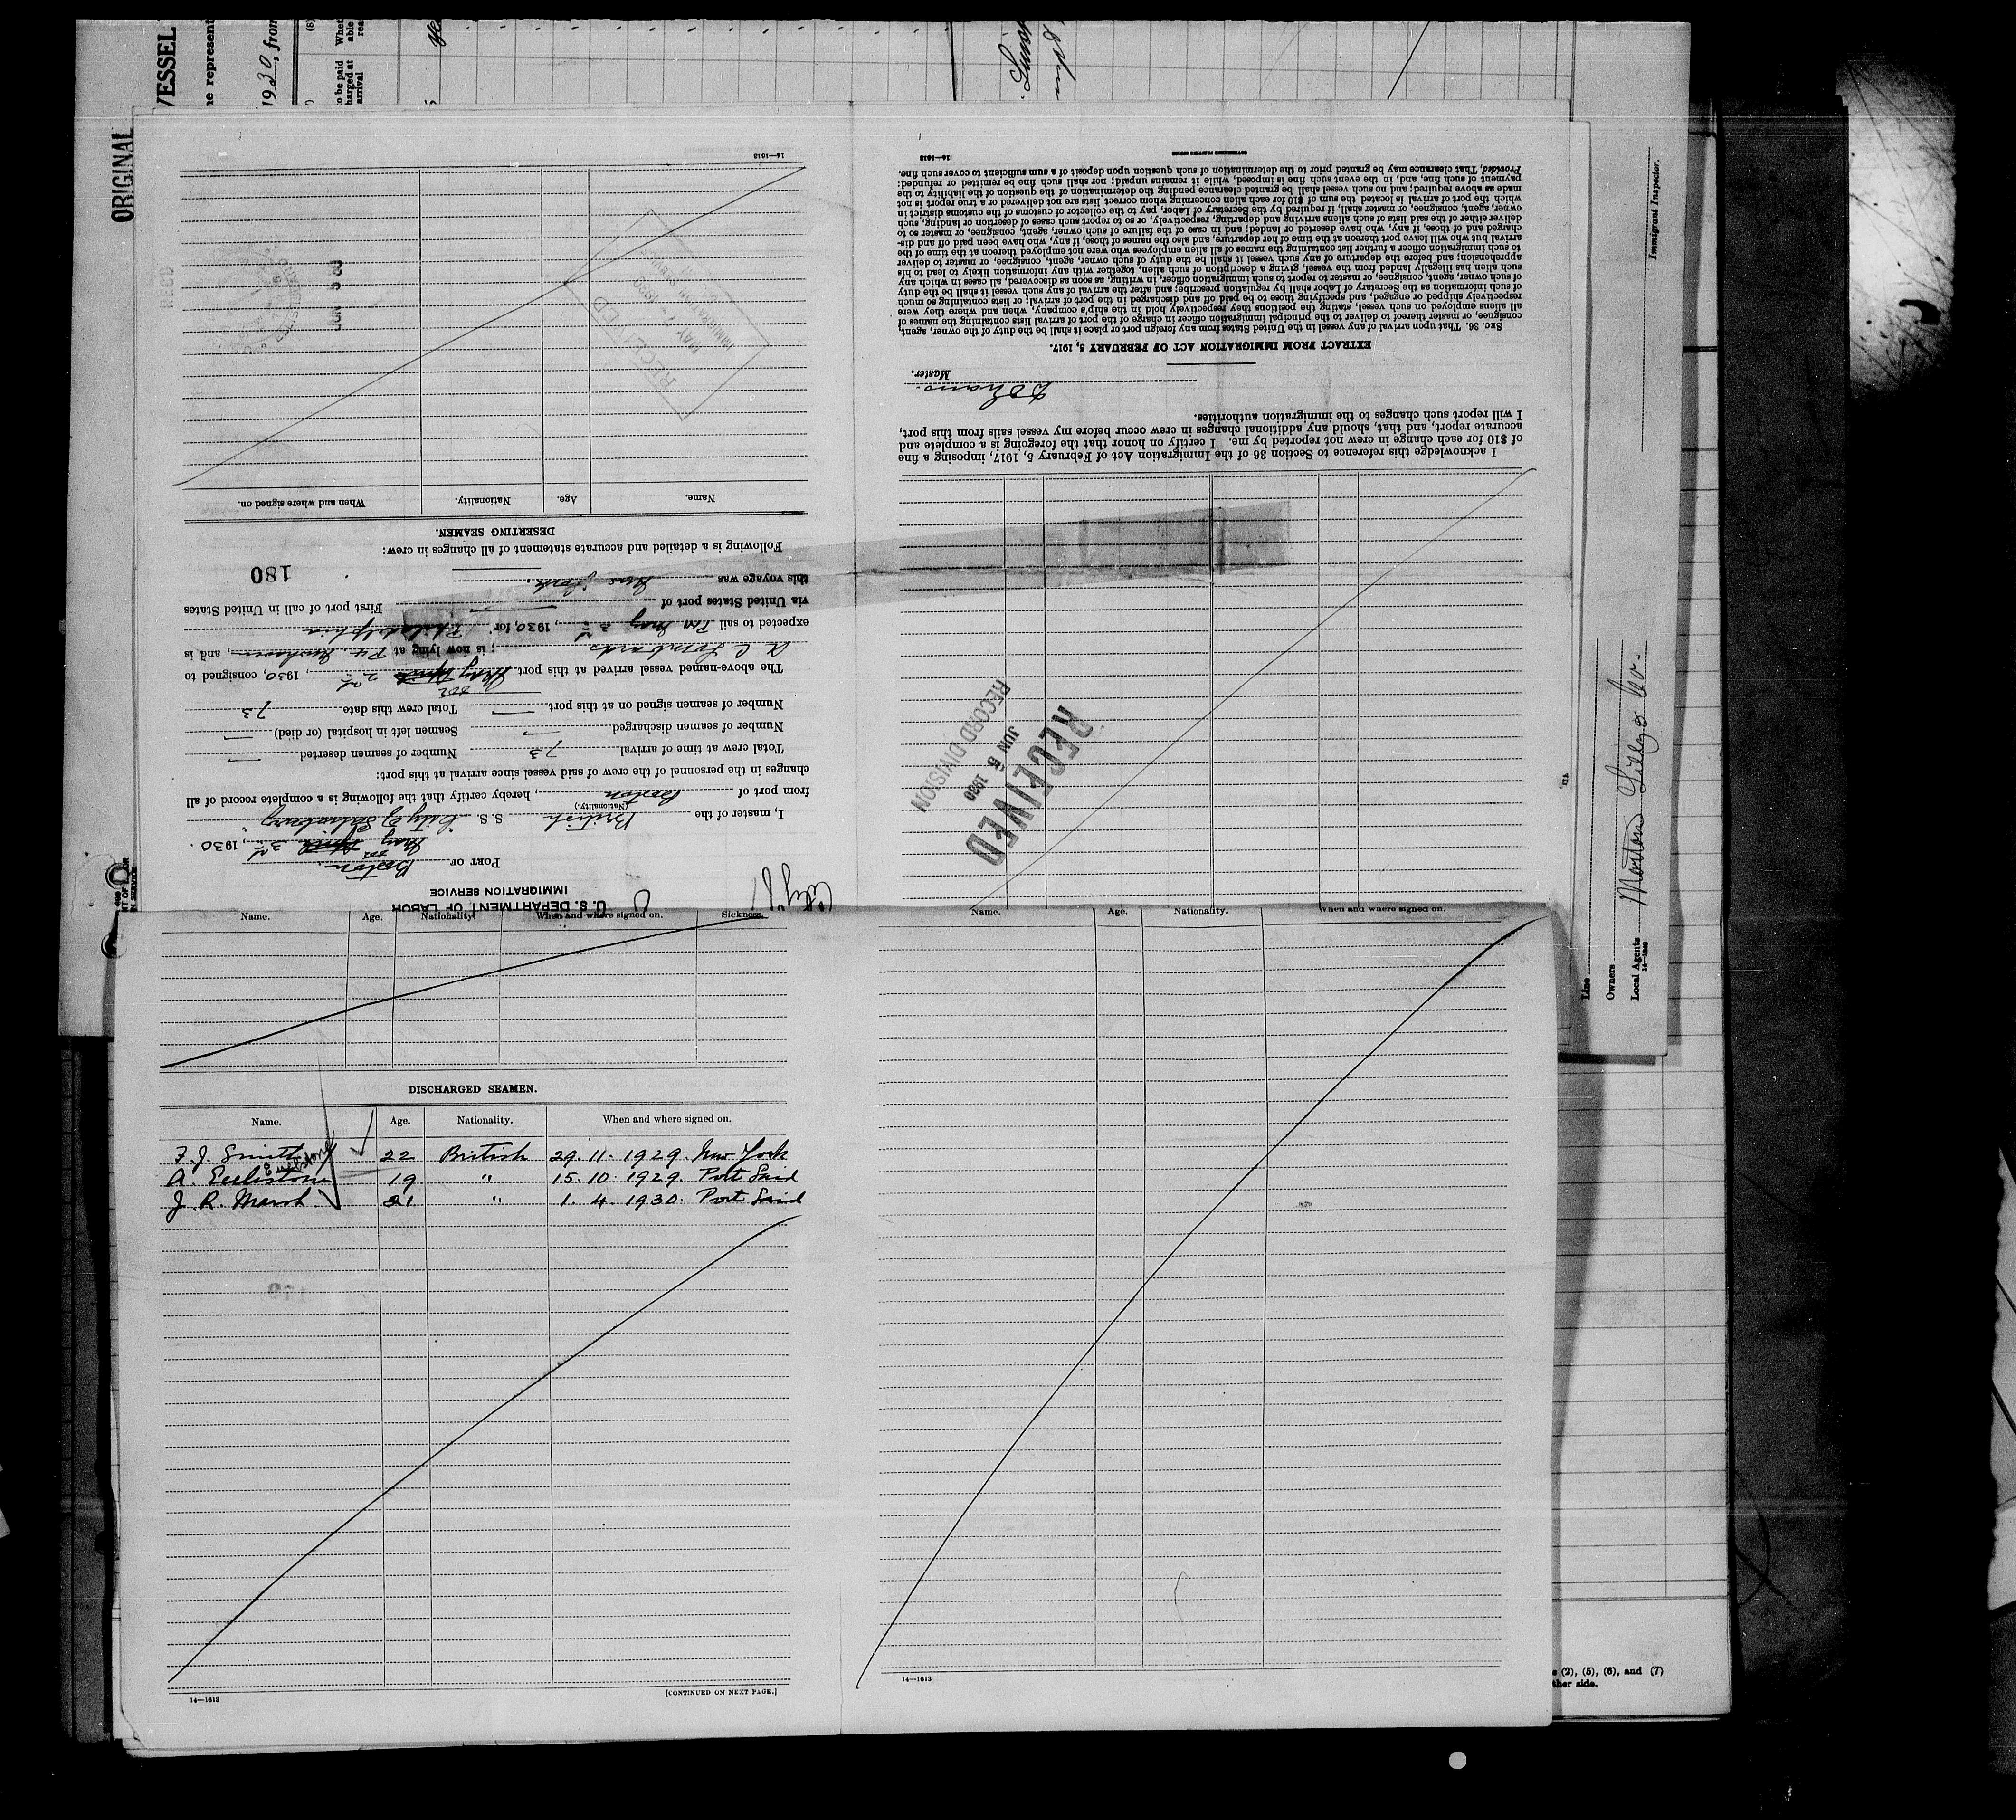 VESSEL
ORIGINAL
1930, from
U. S. DEPARTMENT OF LABOR
IMMIGRATION SERVICE
PORT OF Boston
May 3rd, 1930
I, master of the British S. S. City of Salisbury
(Nationality.)
from port of Boston, hereby certify that the following is a complete record of all
changes in the personnel of the crew of said vessel since arrival at this port:
Total crew at time of arrival 73 Number of seamen deserted —
Number of seamen discharged — Seamen left in hospital (or died) —
Number of seamen signed on at this port — Total crew this date 73
The above-named vessel arrived at this port May 2nd, 1930, consigned to
A C Lombards; is now lying at and is
expected to sail May 3rd, 1930, for Philadelphia
via United States port of — First port of call in United States
this voyage was New York.
180
Following is a detailed and accurate statement of all changes in crew:
DESERTING SEAMEN.
Name. Age. Nationality. When and where signed on.
RECEIVED
MAY
IMMIGRATION
JUN 5 30
14—1613
I acknowledge this reference to Section 36 of the Immigration Act of February 5, 1917, imposing a fine
of $10 for each change in crew not reported by me. I certify on honor that the foregoing is a complete and
accurate report, and that, should any additional changes in crew occur before my vessel sails from this port,
I will report such changes to the immigration authorities.
Master.
EXTRACT FROM IMMIGRATION ACT OF FEBRUARY 5, 1917.
SEC. 36. That upon arrival of any vessel in the United States from any foreign port or place it shall be the duty of the owner, agent,
consignee, or master thereof to deliver to the principal immigration officer in charge of the port of arrival lists containing the names of
all aliens employed on such vessel, stating the positions they respectively hold in the ship's company, when and where they were
respectively shipped or engaged, and specifying those to be paid off and discharged in the port of arrival; or lists containing so much
of such information as the Secretary of Labor shall by regulation prescribe; and after the arrival of any such vessel it shall be the duty
of such owner, agent, consignee, or master to report to such immigration officer, in writing, as soon as discovered, all cases in which any
such alien has illegally landed from the vessel, giving a description of such alien, together with any information likely to lead to his
apprehension; and before the departure of any such vessel it shall be the duty of such owner, agent, consignee, or master to deliver
to such immigration officer a further list containing the names of all alien employees who were not employed thereon at the time of the
arrival but who will leave port thereon at the time of her departure, and also the names of those, if any, who have been paid off and dis-
charged and of those, if any, who have deserted or landed; and in case of the failure of such owner, agent, consignee, or master so to
deliver either of the said lists of such aliens arriving and departing, respectively, or so to report such cases of desertion or landing, such
owner, agent, consignee, or master shall, if required by the Secretary of Labor, pay to the collector of customs of the customs district in
which the port of arrival is located the sum of $10 for each alien concerning whom correct lists are not delivered or a true report is not
made as above required; and no such vessel shall be granted clearance pending the determination of the question of the liability to the
payment of such fine, and, in the event such fine is imposed, while it remains unpaid; nor shall such fine be remitted or refunded:
Provided, That clearance may be granted prior to the determination of such question upon deposit of a sum sufficient to cover such fine.
14—1613
GOVERNMENT PRINTING OFFICE
RECEIVED
JUN 5 1930
RECORD DIVISION
Name. Age. Nationality. When and where signed on. Sickness.
DISCHARGED SEAMEN.
Name. Age. Nationality. When and where signed on.
F. J. Smith 22 British 29. 11. 1929. New York
A. Ecclestone 19 " 15. 10. 1929. Port Said
J. R. Marsh 21 " 1. 4. 1930. Port Said
14—1613
[CONTINUED ON NEXT PAGE.]
Name. Age. Nationality. When and where signed on.
14—1613
Immigrant Inspector.
Line
Owners
Local Agents Morton Lilly & Co.
14—1240
(2), (5), (6), and (7)
other side.